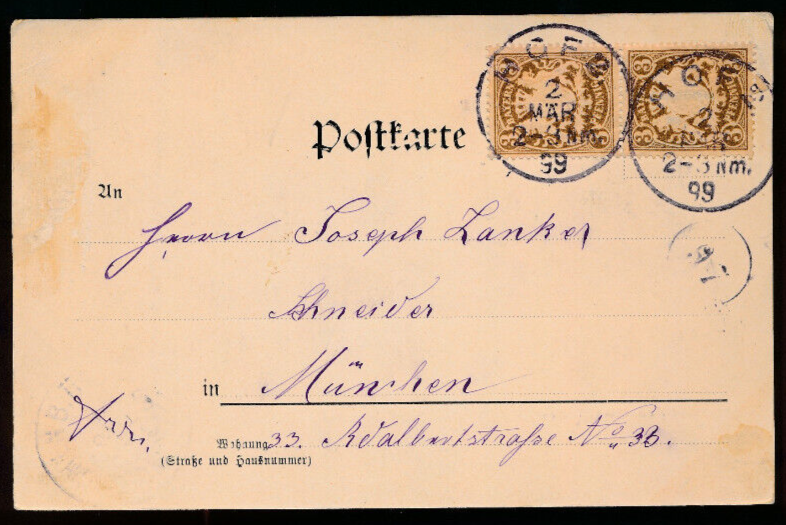 HOF 2
2
MÄR
2-3 Nm.
99
HOF
2
2-3 Nm.
99
Postkarte
An
Herrn Joseph Zanker
Schneider
in München
Wohnung 33. Adalbertstraße No 33.
(Straße und Hausnummer)